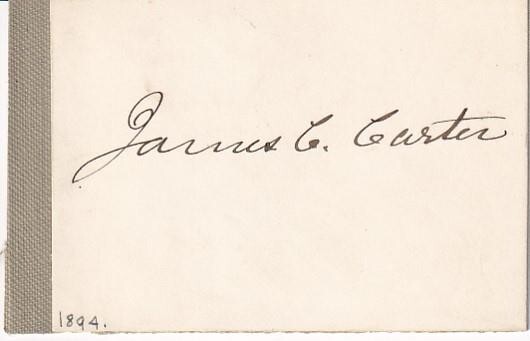 James C. Carter
1894.